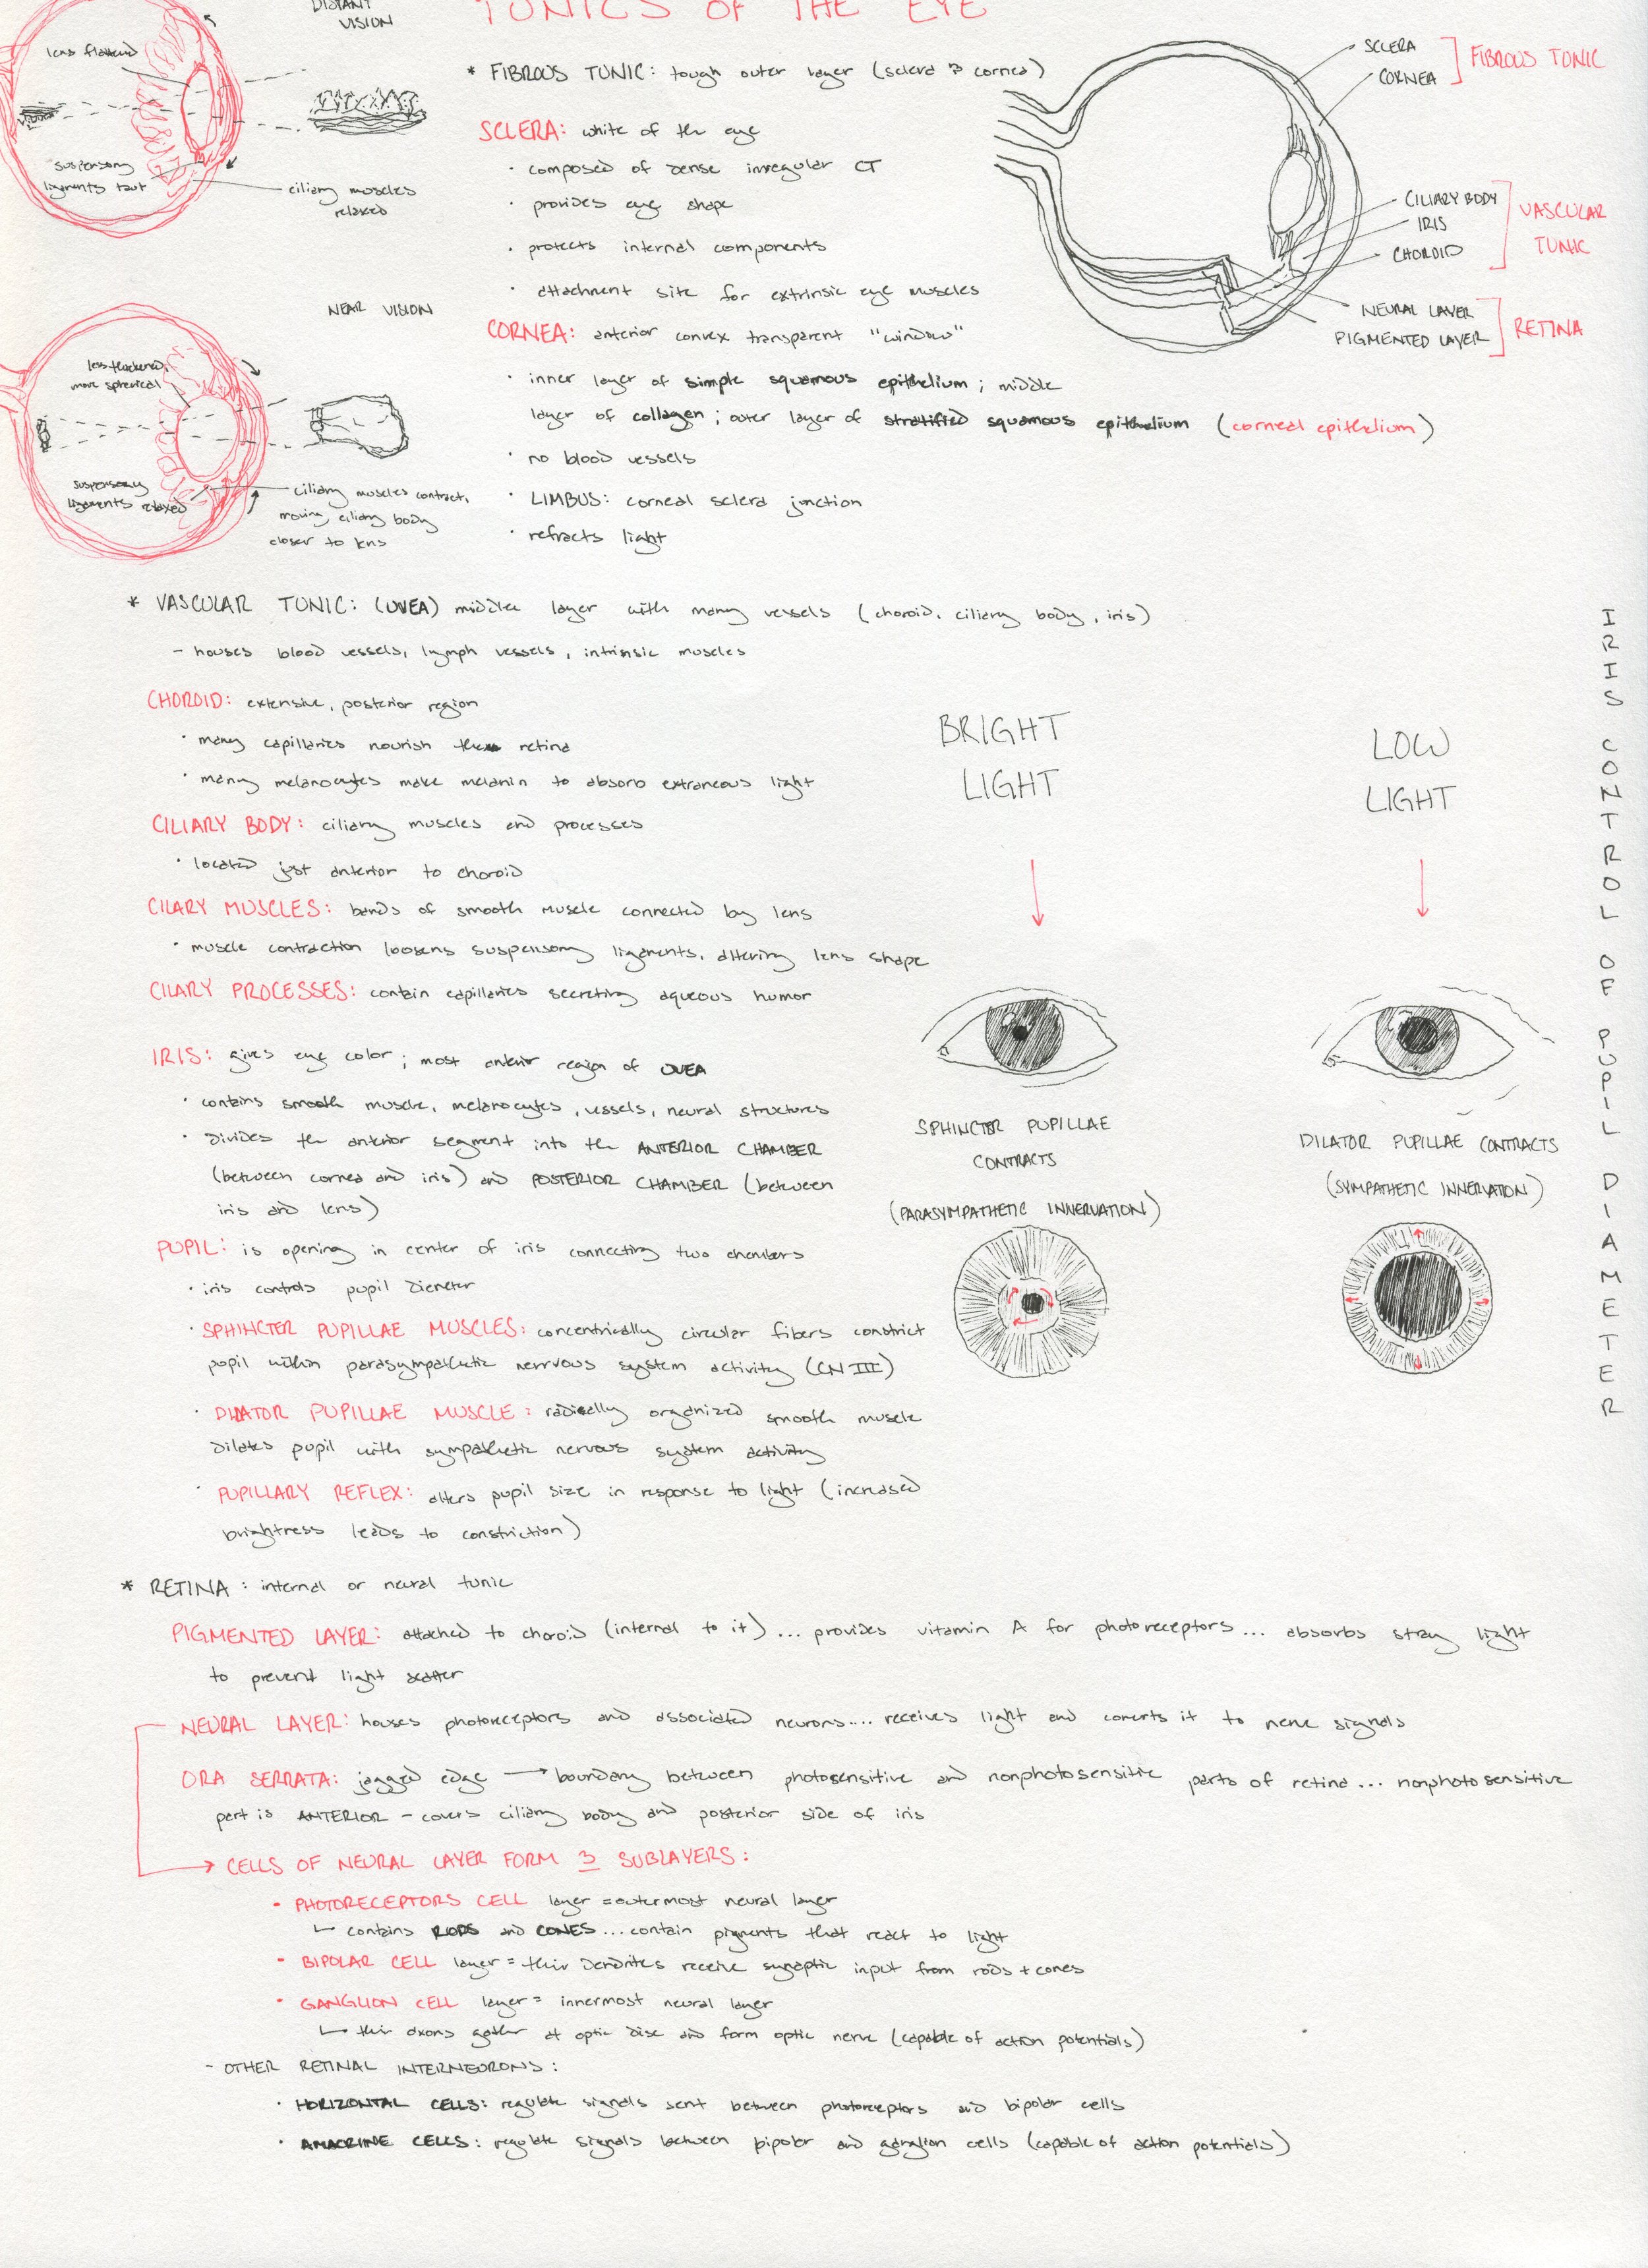 TUNICS OF THE EYE
DISTANT
VISION
lens flattened
suspensory
ligaments taut
ciliary muscles
relaxed
NEAR VISION
lens thickened,
more spherical
suspensory
ligaments relaxed
ciliary muscles contract,
moving ciliary body
closer to lens
* FIBROUS TUNIC: tough outer layer (sclera & cornea)
SCLERA: white of the eye
· composed of dense irregular CT
· provides eye shape
· protects internal components
· attachment site for extrinsic eye muscles
CORNEA: anterior convex transparent "window"
· inner layer of simple squamous epithelium; middle
layer of collagen; outer layer of stratified squamous epithelium (corneal epithelium)
· no blood vessels
· LIMBUS: corneal sclera junction
· refracts light
SCLERA
CORNEA
FIBROUS TONIC
CILIARY BODY
IRIS
CHOROID
VASCULAR
TUNIC
NEURAL LAYER
PIGMENTED LAYER
RETINA
* VASCULAR TONIC: (UVEA) middle layer with many vessels (choroid, ciliary body, iris)
- houses blood vessels, lymph vessels, intrinsic muscles
CHOROID: extensive, posterior region
· many capillaries nourish the retina
· many melanocytes make melanin to absorb extraneous light
CILIARY BODY: ciliary muscles and processes
· located just anterior to choroid
CILARY MUSCLES: bands of smooth muscle connected by lens
· muscle contraction loosens suspensory ligaments, altering lens shape
CILARY PROCESSES: contain capillaries secreting aqueous humor
IRIS: gives eye color; most anterior region of UVEA
· contains smooth muscle, melanocytes, vessels, neural structures
· divides the anterior segment into the ANTERIOR CHAMBER
(between cornea and iris) and POSTERIOR CHAMBER (between
iris and lens)
PUPIL: is opening in center of iris connecting two chambers
· iris controls pupil diameter
· SPHINCTER PUPILLAE MUSCLES: concentrically circular fibers constrict
pupil within parasympathetic nerrvous system activity (CN III)
· DILATOR PUPILLAE MUSCLE: radically organized smooth muscle
dilates pupil with sympathetic nervous system activity
· PUPILLARY REFLEX: alters pupil size in response to light (increased
brightness leads to constriction)
BRIGHT
LIGHT
LOW
LIGHT
SPHINCTER PUPILLAE
CONTRACTS
(PARASYMPATHETIC INNERVATION)
DILATOR PUPILLAE CONTRACTS
(SYMPATHETIC INNERVATION)
IRIS CONTROL OF PUPIL DIAMETER
* RETINA: internal or neural tunic
PIGMENTED LAYER: attached to choroid (internal to it)... provides vitamin A for photoreceptors... absorbs stray light
to prevent light scatter
NEURAL LAYER: houses photoreceptors and associated neurons.... receives light and converts it to nerve signals
ORA SERRATA: jagged edge → boundary between photosensitive and nonphotosensitive parts of retina... nonphotosensitive
part is ANTERIOR - covers ciliary body and posterior side of iris
→ CELLS OF NEURAL LAYER FORM 3 SUBLAYERS:
· PHOTORECEPTORS CELL layer = outermost neural layer
contains RODS and CONES... contain pigments that react to light
· BIPOLAR CELL layer = their dendrites receive synaptic input from rods + cones
· GANGLION CELL layer = innermost neural layer
their axons gather at optic disc and form optic nerve (capable of action potentials)
- OTHER RETINAL INTERNEURONS:
· HORIZONTAL CELLS: regulate signals sent between photoreceptors and bipolar cells
· AMACRINE CELLS: regulate signals between bipolar and ganglion cells (capable of action potentials)